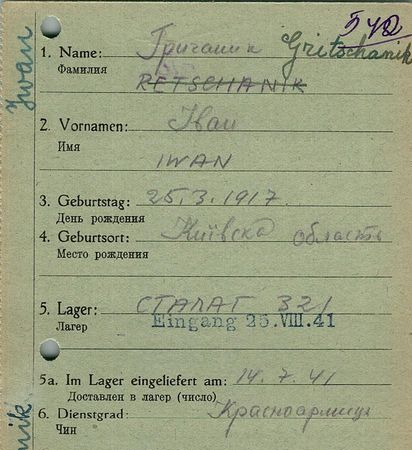 Гричаник Gritschanik
1. Name:
Фамилия
RETSCHANIK
2. Vornamen: Іван
Имя
IWAN
3. Geburtstag: 25.3.1917.
День рождения
4. Geburtsort: Київска область
Место рождения
5. Lager: СТАЛАГ 321
Лагер
Eingang 25. VIII. 41
5a. Im Lager eingeliefert am: 14.7.41
Доставлен в лагер (число)
6. Dienstgrad: Красноармиць
Чин
Iwan